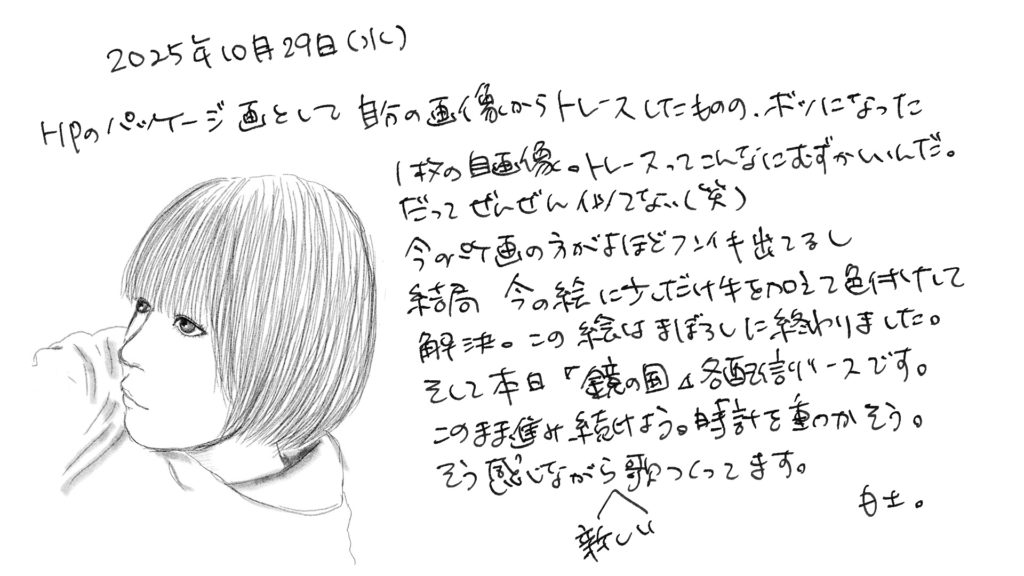 2025年10月29日(水)
HPのパッケージ画として自分の画像からトレースしたものの、ボツになった
1枚の自画像。トレースってこんなにむずかしいんだ。
だってぜんぜん似てない(笑)
今の 画の方がよほどフンイキ出てるし
結局 今の絵に少しだけ手を加えて色付けして
解決。この絵はまぼろしに終わりました。
そして本日『鏡の国』各配信リリースです。
このまま進み続けよう。時計を動かそう。
そう感じながら歌つくってます。
新しい
白士。